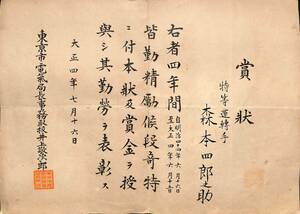 賞状
特等運轉手
森本四郎之助
右者四年間
自明治四十四年六月十六日
至大正四年六月十五日
皆勤精勵候段奇特
ニ付本狀及賞金ヲ授
與シ其勤勞ヲ表彰ス
大正四年七月十六日
東京市電氣局長事務取扱井上敬次郎